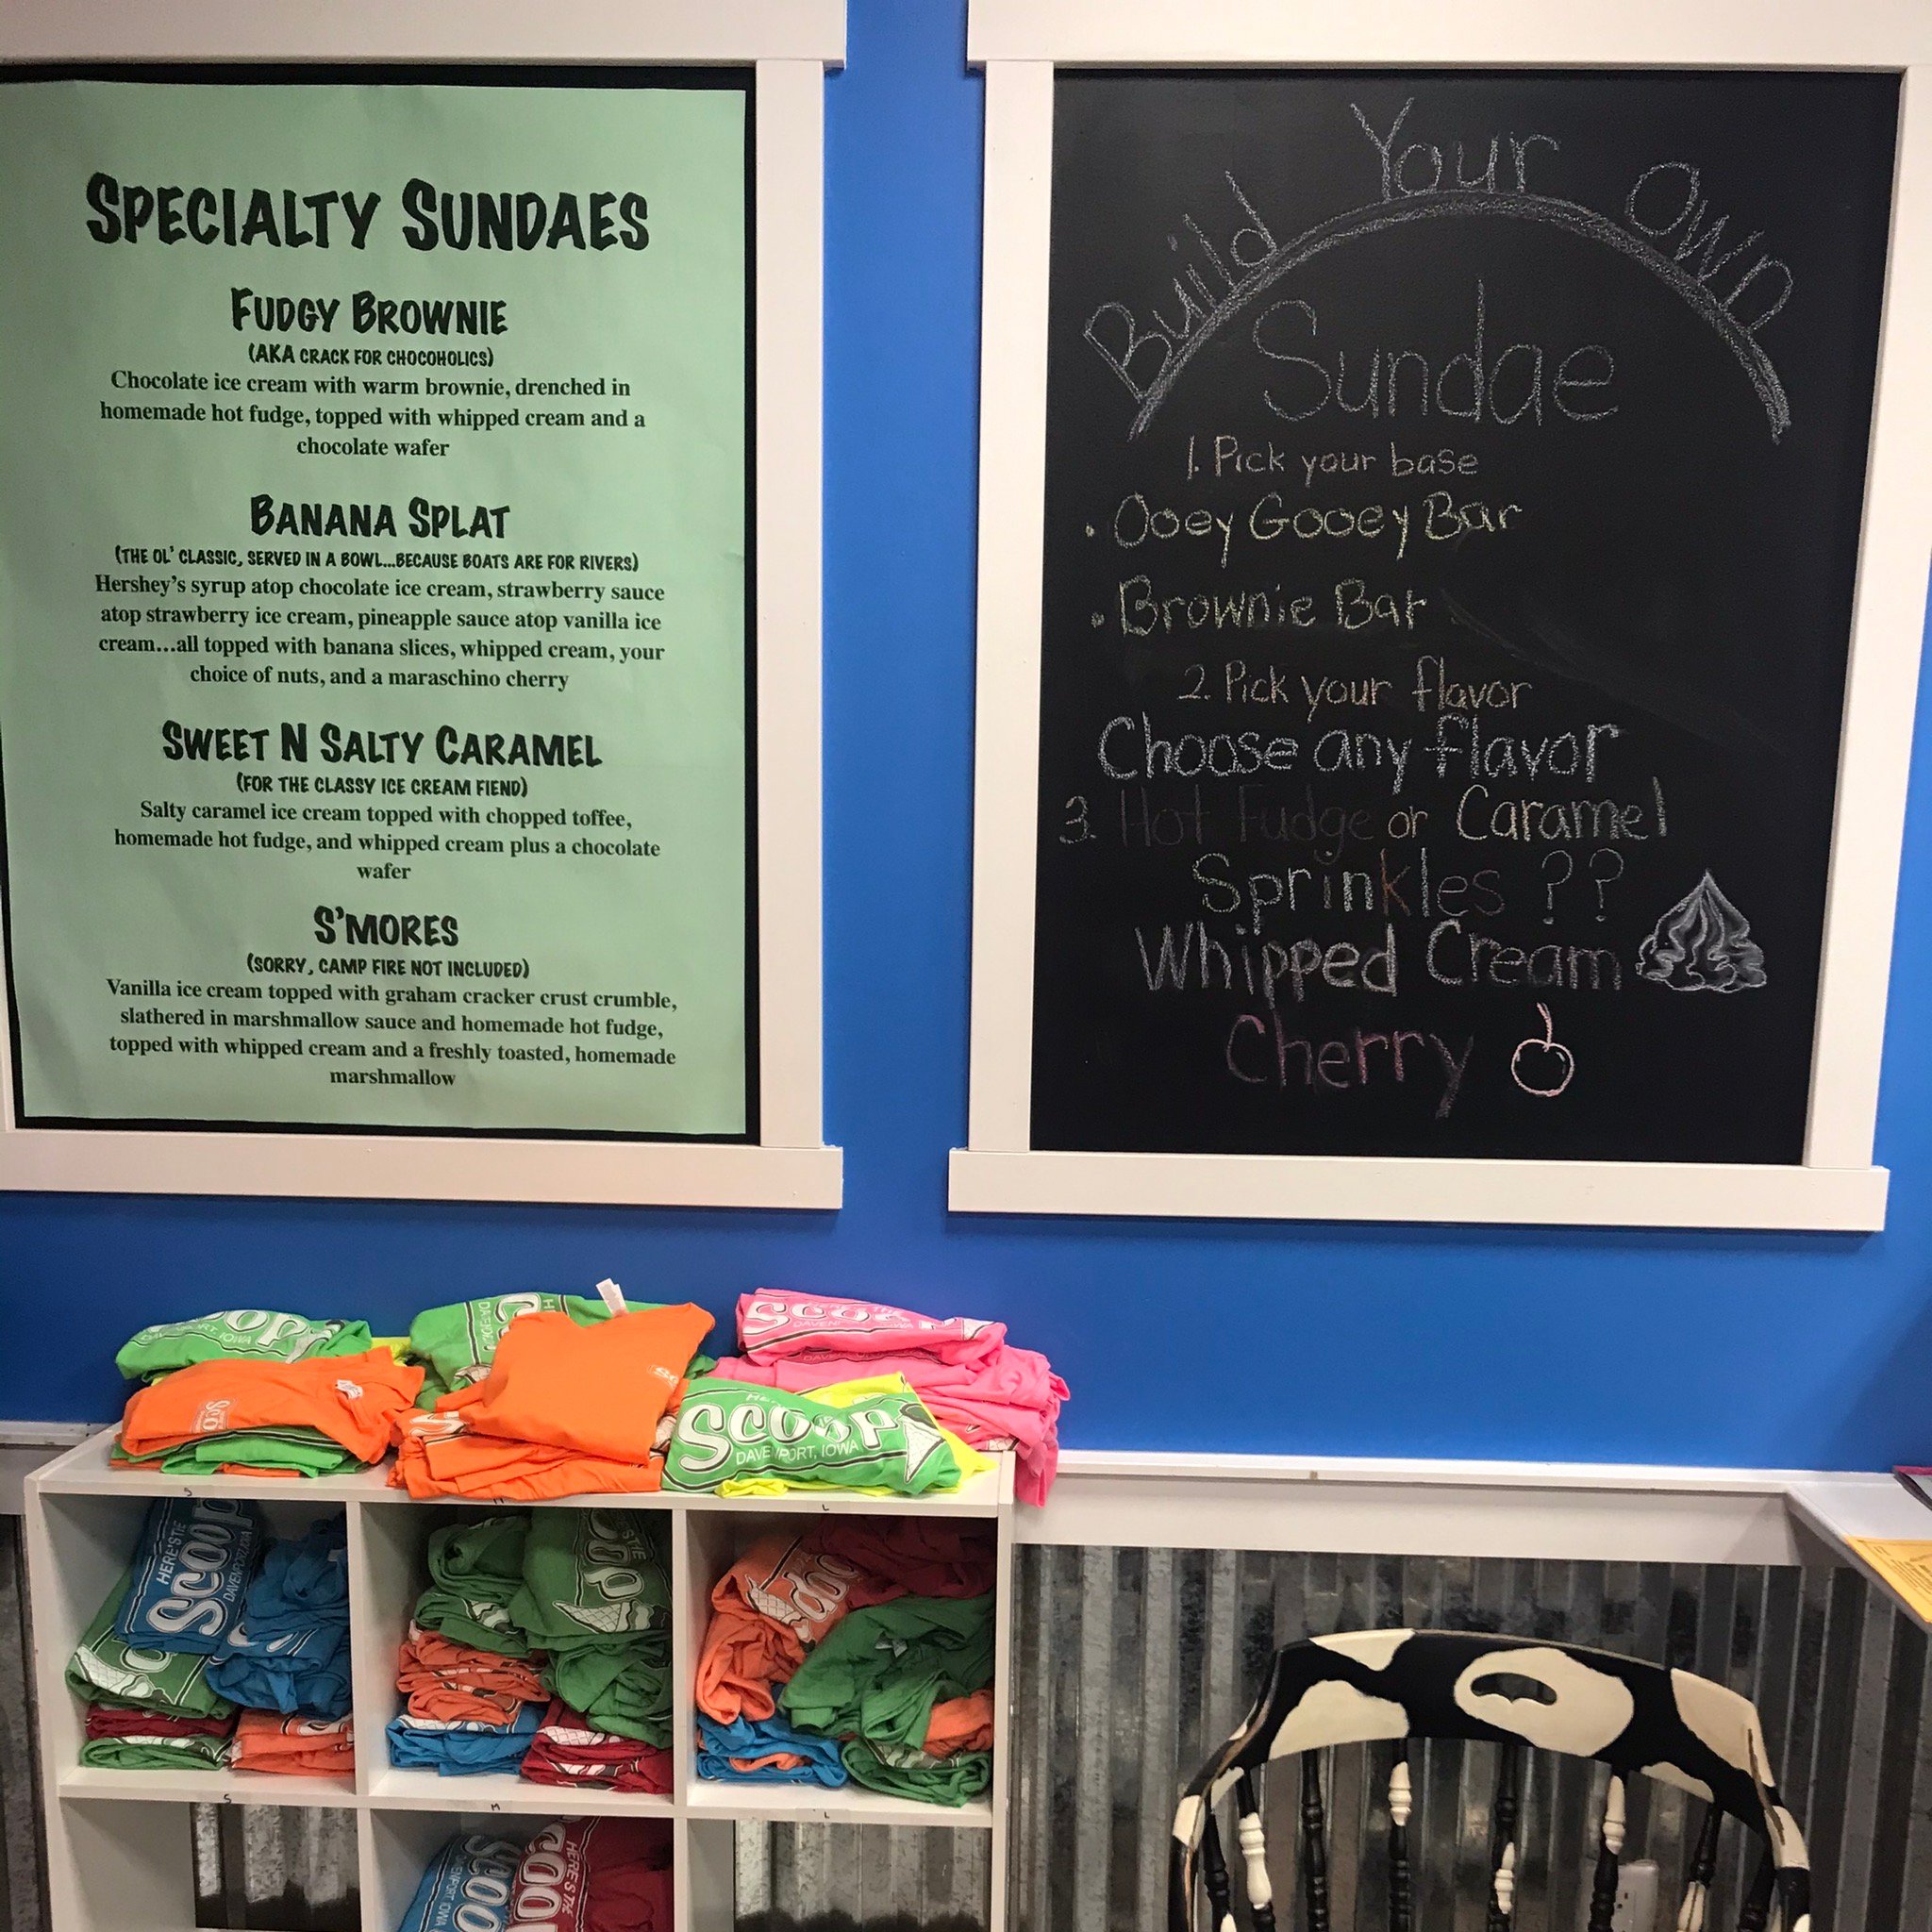 SPECIALTY SUNDAES
FUDGY BROWNIE
(AKA CRACK FOR CHOCOHOLICS)
Chocolate ice cream with warm brownie, drenched in
homemade hot fudge, topped with whipped cream and a
chocolate wafer
BANANA SPLAT
(THE OL' CLASSIC, SERVED IN A BOWL...BECAUSE BOATS ARE FOR RIVERS)
Hershey's syrup atop chocolate ice cream, strawberry sauce
atop strawberry ice cream, pineapple sauce atop vanilla ice
cream...all topped with banana slices, whipped cream, your
choice of nuts, and a maraschino cherry
SWEET N SALTY CARAMEL
(FOR THE CLASSY ICE CREAM FIEND)
Salty caramel ice cream topped with chopped toffee,
homemade hot fudge, and whipped cream plus a chocolate
wafer
S'MORES
(SORRY, CAMP FIRE NOT INCLUDED)
Vanilla ice cream topped with graham cracker crust crumble,
slathered in marshmallow sauce and homemade hot fudge,
topped with whipped cream and a freshly toasted, homemade
marshmallow
Build Your Own
Sundae
1. Pick your base
• Ooey Gooey Bar
• Brownie Bar
2. Pick your flavor
Choose any flavor
3. Hot Fudge or Caramel
Sprinkles ??
Whipped Cream
Cherry
SCOOP
DAVENPORT, IOWA
S
L
HERE'S THE
SCOOP
DAVENPORT, IOWA
S
M
L
HERE'S THE